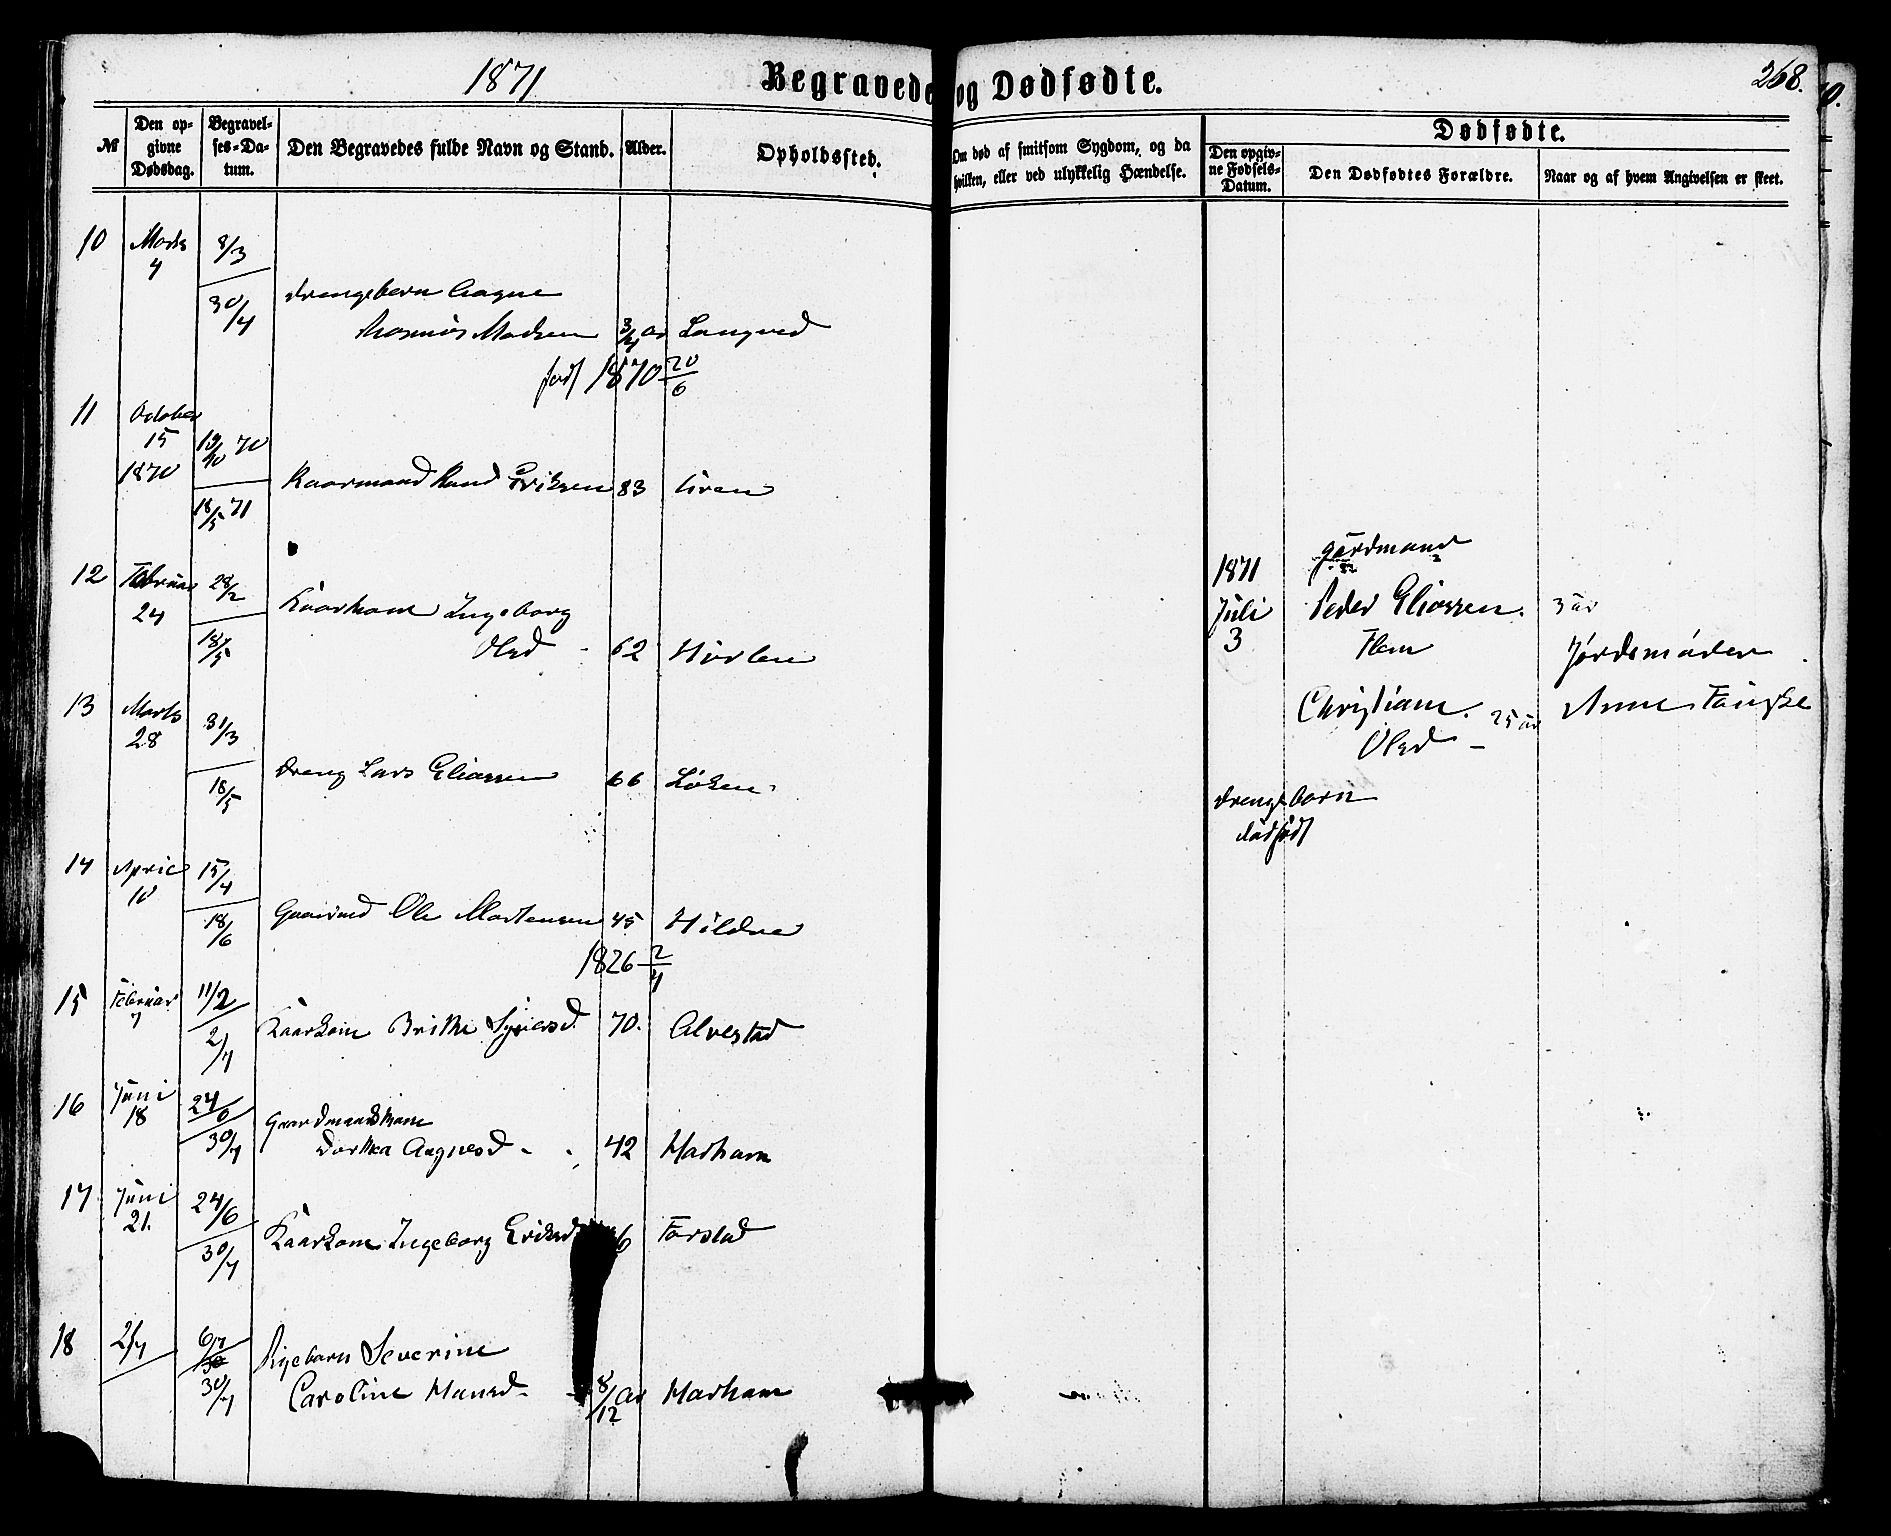 1871
Begravede og Dødfødte.
268.
№
Den opgivne Dødsdag.
Begravelses-Datum.
Den Begravedes fulde Navn og Stand.
Alder.
Opholdssted.
Om død af smitsom Sygdom, og da
hvilken, eller ved ulykkelig Hændelse.
Dødfødte.
Den opgivne Fødsels-Datum.
Den Dødfødtes Forældre.
Naar og af hvem Angivelsen er skeet.
10 Marts 4 8/3
30/4 Drengebarn Aagne
Rasmus Madsen 3/4 Ar Langved
født 1870 20/6
11 October
15 19/10 70
1870 Kaarmand Knud Eriksen 83
18/5 71
12 Februar 24 28/2
Kaarkone Ingeborg
18/5 Olsd - 62
13 Marts 28 31/3
Dreng Lars Eliassen 66 Løken
18/5
14 April 10 15/4
18/6 Gaardmd Ole Mortensen 45 Hildre
1826 2/4
15 Februar 7 11/2
2/7 Kaarkone Brithe 70. Alvestad
16 Juni 18 24/6
Gaardmandskone
30/7 Dorthea Aagnesd - 42 Harham
17 Juni 21. 24/6
Kaarkone Ingeborg Eriksd 6 Farstad
30/7
18 2/7 6/7
Pigebarn Severine
30/7 Caroline Hansd - 8/12 Ar Harham
1871
Juli
3
gårdmand
Peder Eliassen.
Flem
Christiane 25 år
Olsd -
Jordemoder
Anne Fauske
Drengebarn
dødfødt